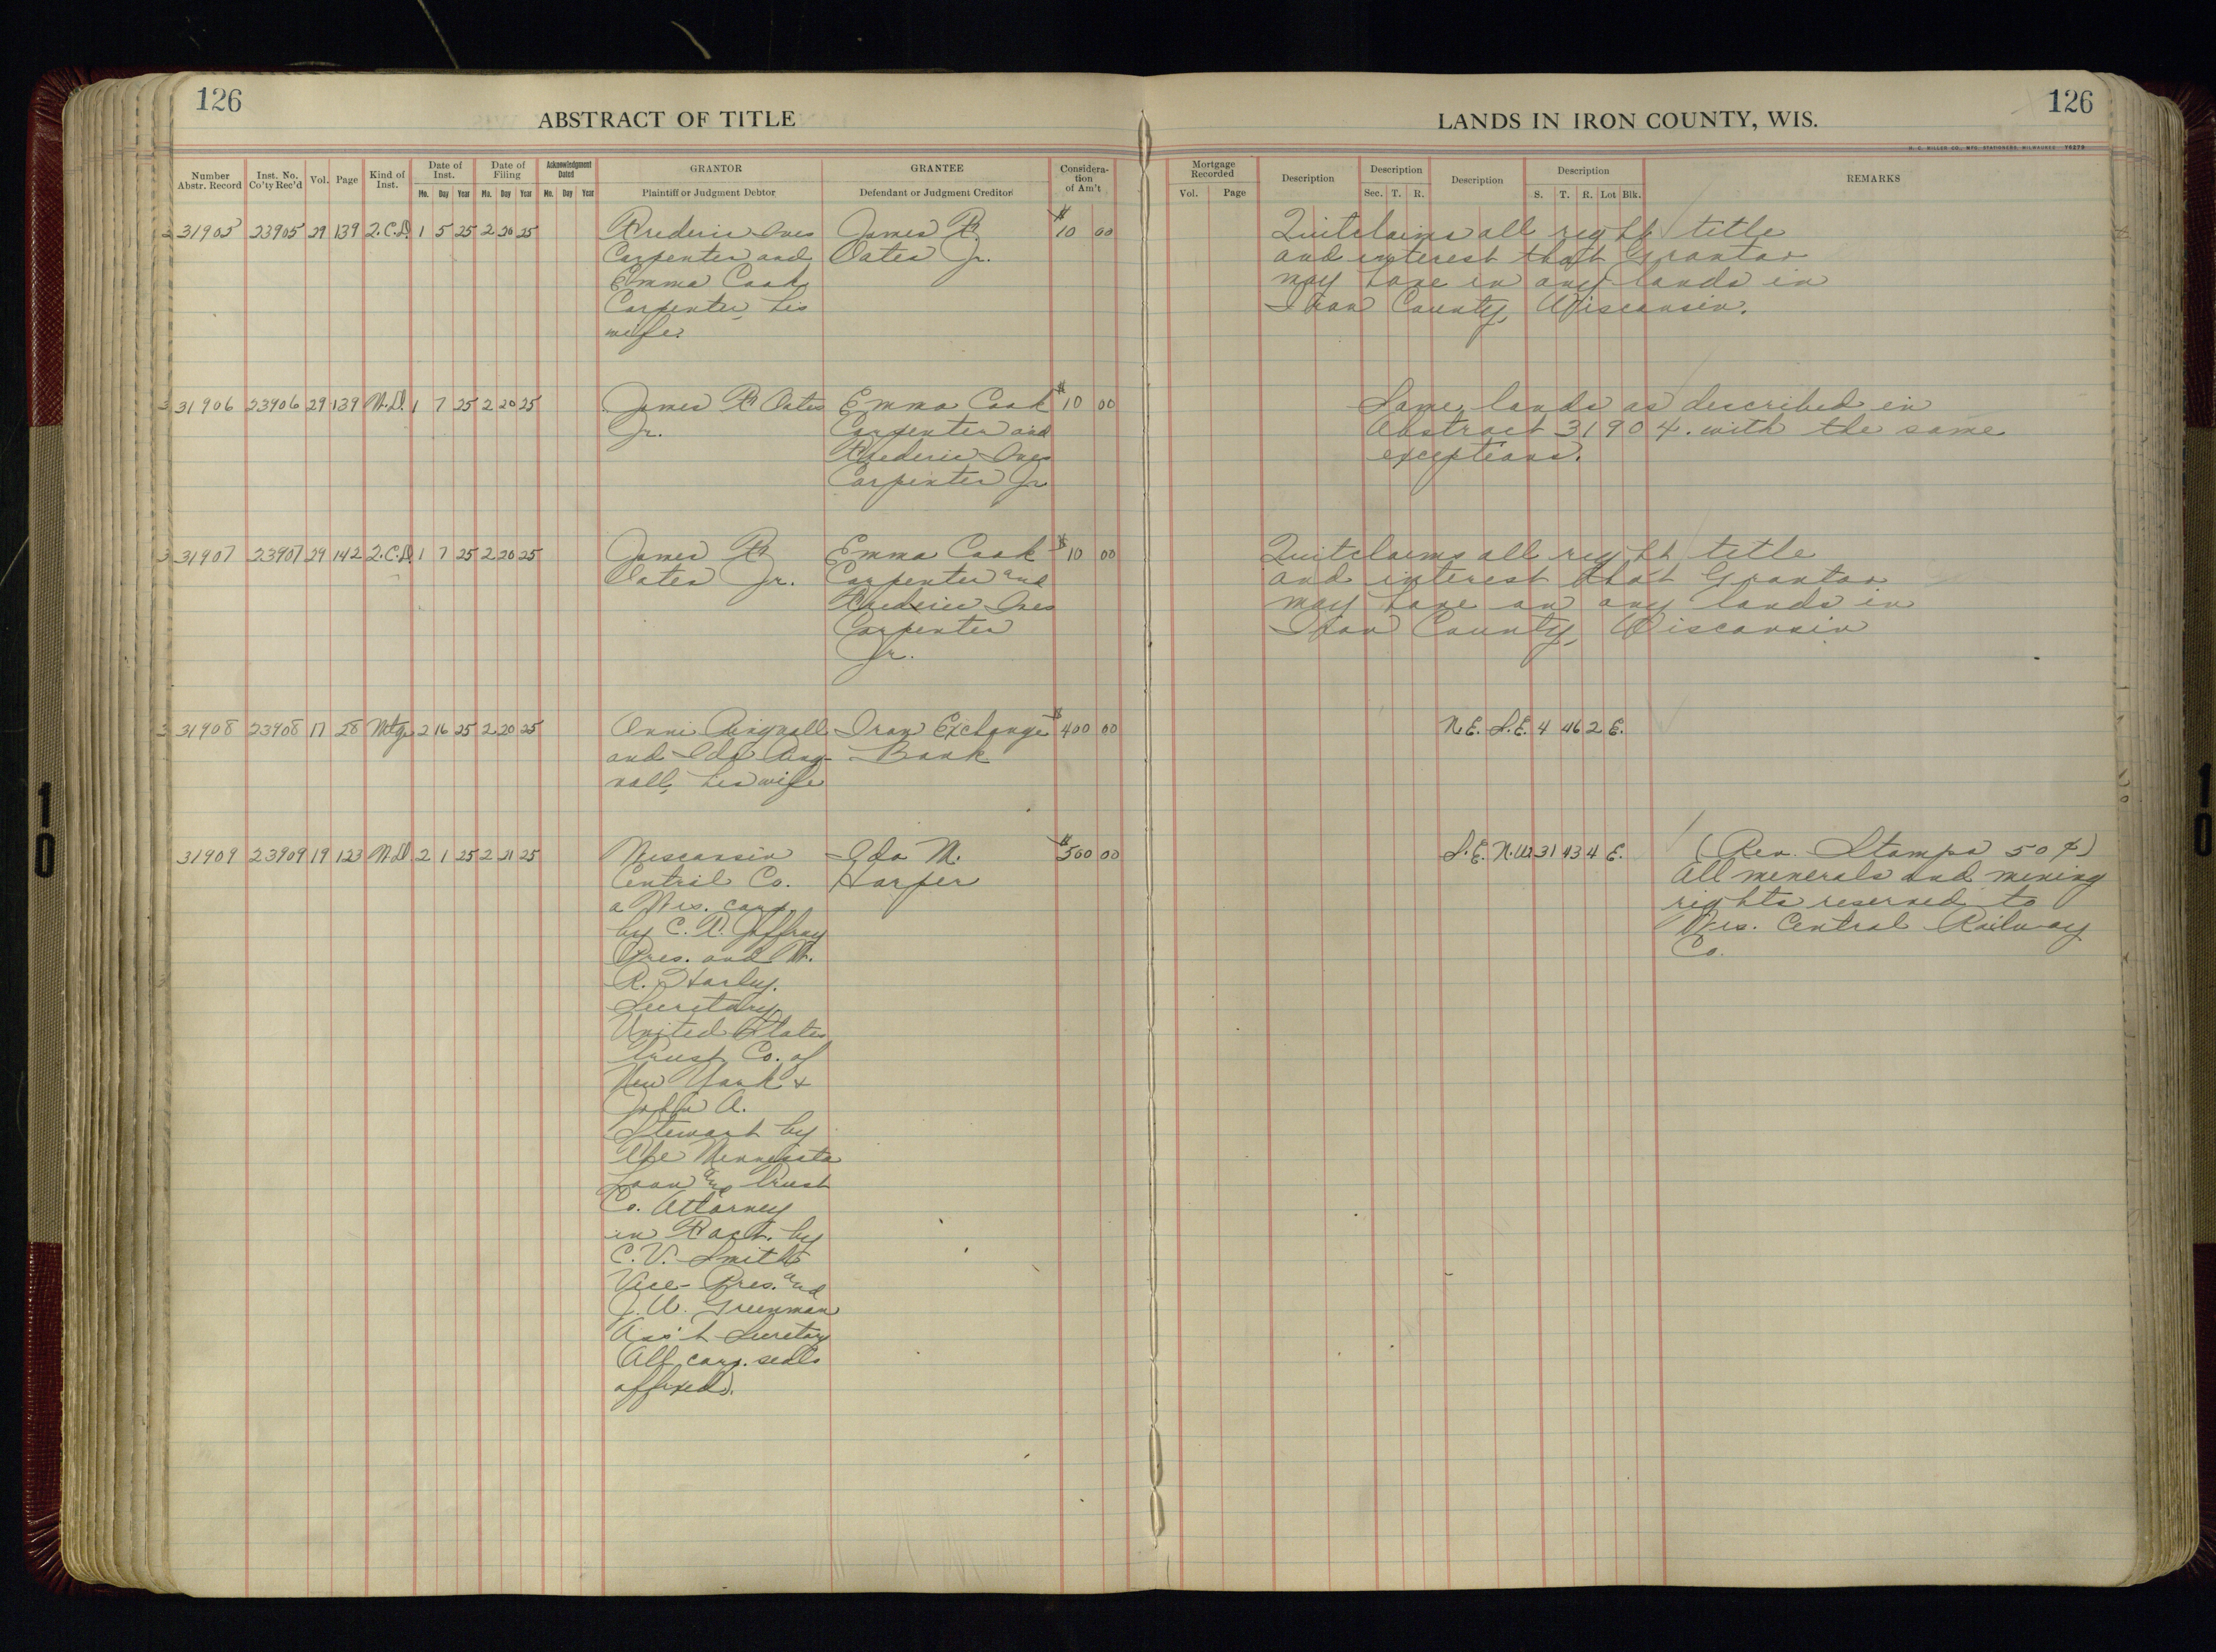 126
ABSTRACT OF TITLE
LANDS IN IRON COUNTY, WIS.
126
H. C. MILLER CO., MFG. STATIONERS, MILWAUKEE
Number Abstr. Record
Inst. No. Co'ty Rec'd
Vol.
Page
Kind of Inst.
Date of Inst.
Mo. Day Year
Date of Filing
Mo. Day Year
Acknowledgment Dated
Mo. Day Year
GRANTOR
Plaintiff or Judgment Debtor
GRANTEE
Defendant or Judgment Creditor
Considera-
tion
of Am't
Mortgage Recorded
Vol. Page
Description
Description
Sec. T. R.
Description
Description
S. T. R. Lot Blk.
REMARKS
31905 23905 29 139 Q.C.D. 1 5 25 2 20 25
Frederic Ives
Carpenter and
Emma Cook
Carpenter, his
wife.
James F.
Oates Jr.
$10 00
Quitclaims all right title
and interest that Grantor
may have in any lands in
Iron County, Wisconsin.
31906 23906 29 139 W.D. 1 7 25 2 20 25
James F. Oates
Jr.
Emma Cook
Carpenter and
Frederic Ives
Carpenter Jr
$10 00
Same lands as described in
Abstract 31904. with the same
exceptions.
31907 23907 29 142 Q.C.D. 1 7 25 2 20 25
James F.
Oates Jr.
Emma Cook
Carpenter and
Frederic Ives
Carpenter
Jr.
$10 00
Quitclaims all right title
and interest that Grantor
may have in any lands in
Iron County, Wisconsin
31908 23908 17 28 Mtg. 2 16 25 2 20 25
and Ida
his wife
Iron Exchange
Bank
$400 00
N.E. S.E. 4 46 2 E.
31909 23909 19 123 W.D. 2 1 25 2 21 25
Wisconsin
Central Co.
a Wis. corp.
by C. T. Jaffray
Pres. and W.
R. Harley.
Secretary
United States
Trust Co. of
New York &
John A.
Stewart by
The Minnesota
Loan and Trust
Co. Attorney
in Fact. by
C. V. Smith
Vice-Pres. and
J. W. Greenman
Ass't Secretary
(All corp. seals
affixed).
Ida M.
Harper
$500 00
S.E. N.W. 31 43 4 E.
(Rev. Stamps 50¢)
All minerals and mining
rights reserved to
Wis. Central Railway
Co.
10
10